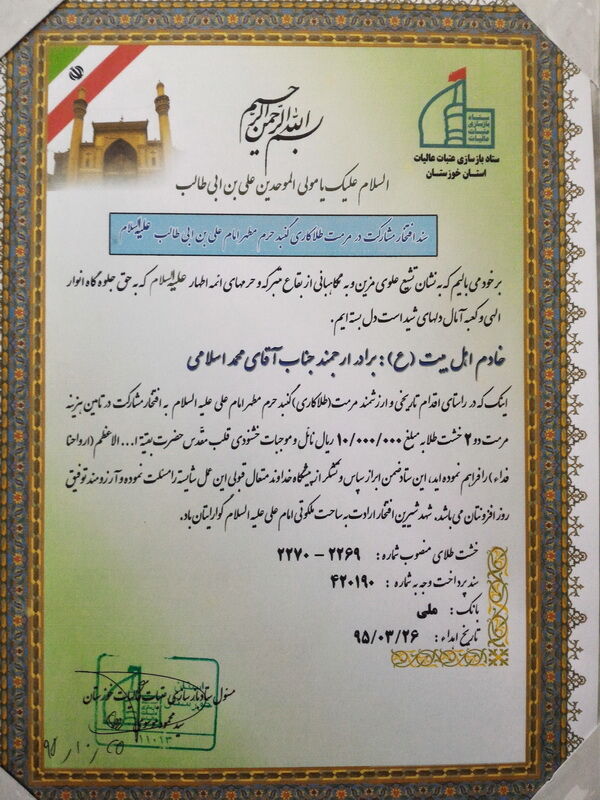 بسم الله الرحمن الرحیم
ستاد
بازسازی
عتبات
عالیات
ستاد بازسازی عتبات عالیات
استان خوزستان
السلام علیک یا مولی الموحدین علی بن ابی طالب
سند افتخار مشارکت در مرمت طلاکاری گنبد حرم مطهر امام علی بن ابی طالب علیه السلام
بر خود می بالیم که به نشان تشیع علوی مزین و به نگاهبانی از بقاع متبرکه و حرمهای ائمه اطهار علیه السلام که به حق جلوه گاه انوار
الهی و کعبه آمال دلهای شید است دل بسته ایم.
خادم اهل بیت (ع) : برادر ارجمند جناب آقای محمد اسلامی
اینک که در راستای اقدام تاریخی و ارزشمند مرمت (طلاکاری) گنبد حرم مطهر امام علی علیه السلام به افتخار مشارکت در تامین هزینه
مرمت دو ۲ خشت طلا به مبلغ ۱۰/۰۰۰/۰۰۰ ریال نائل و موجبات خشنودی قلب مقدس حضرت بقیة ا... الاعظم (ارواحنا
فداء) را فراهم نموده اید، این ستاد ضمن ابراز سپاس و تشکر از پیشگاه خداوند متعال قبولی این عمل شایسته را مسئلت نموده و آرزومند توفیق
روز افزونتان می باشد. شهد شیرین افتخار ارادت به ساحت ملکوتی امام علی علیه السلام گوارایتان باد.
خشت طلای منصوب شماره : ۲۲۶۹ – ۲۲۷۰
سند پرداخت وجه به شماره : ۴۲۰۱۹۰
بانک : ملی
تاریخ اهداء : ۹۵/۰۳/۲۶
مسئول ستاد بازسازی عتبات عالیات خوزستان
سید محمود موسوی
۱۱۰۱۳